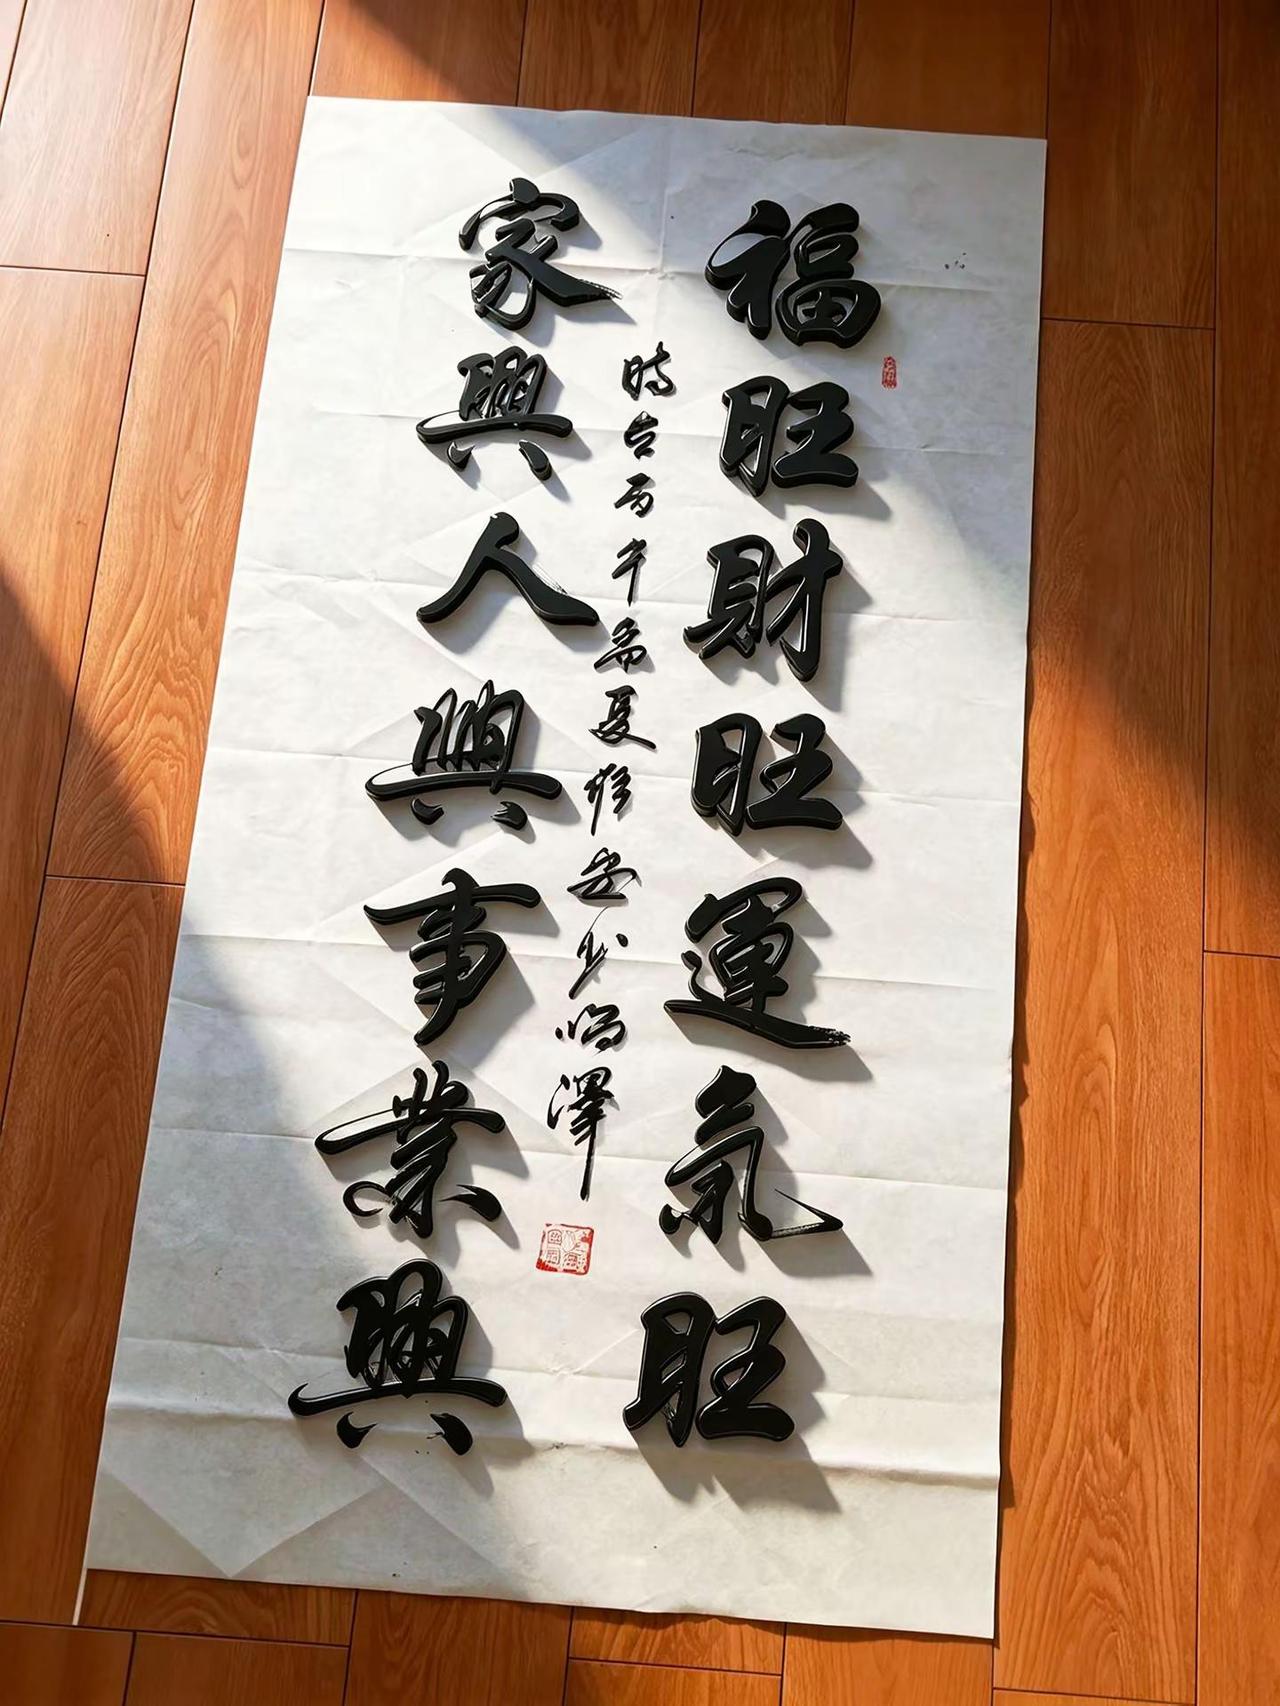 福旺財旺運氣旺
家興人興事業興
時在丙午孟夏於
澤